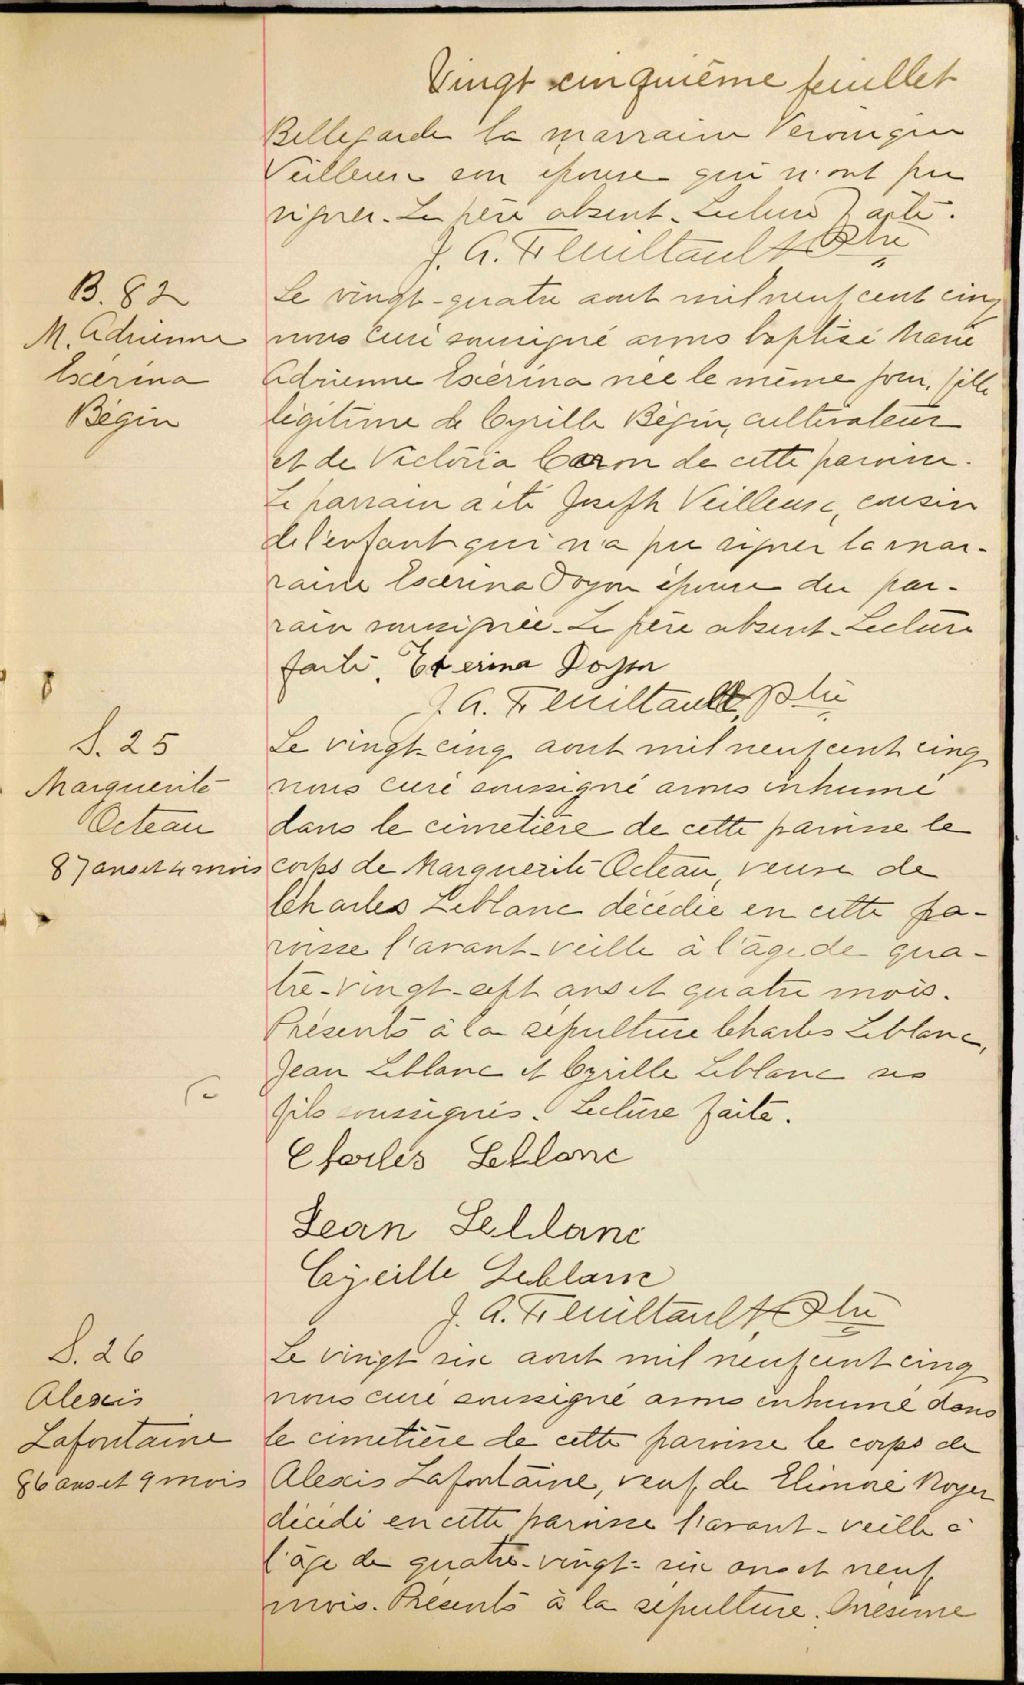 Vingt cinquième feuillet
Bellegarde la marraine Veronique
Veilleux son épouse qui n'ont pu
signer. Le père absent. Lecture faite.
J. A. Feuiltault Ptre
B. 82
M. Adrienne
Exérina
Bégin
Le vingt-quatre aout mil neuf cent cinq
nous curé soussigné avons baptisé Marie
Adrienne Exérina née le même jour, fille
légitime de Cyrille Bégin, cultivateur
et de Victoria Caron de cette paroisse.
Le parrain a été Joseph Veilleux, cousin
de l'enfant qui n'a pu signer la mar-
raine Exérina Doyon épouse du par-
rain soussignée. Le père absent. Lecture
faite. Exerina Doyon
J. A. Feuiltault, Ptre
S. 25
Marguerite
Octeau
87 ans et 4 mois
Le vingt-cinq aout mil neuf cent cinq
nous curé soussigné avons inhumé
dans le cimetière de cette paroisse le
corps de Marguerite Octeau, veuve de
Charles Leblanc décédée en cette pa-
roisse l'avant-veille à l'âge de qua-
tre-vingt-sept ans et quatre mois.
Présents à la sépulture Charles Leblanc,
Jean Leblanc et Cyrille Leblanc ses
fils soussignés. Lecture faite.
Charles Leblanc
Jean Leblanc
Cyrille Leblanc
J. A. Feuiltault, Ptre
S. 26
Alexis
Lafontaine
86 ans et 9 mois
Le vingt six aout mil neuf cent cinq
nous curé soussigné avons inhumé dans
le cimetière de cette paroisse le corps de
Alexis Lafontaine, veuf de Elionore Royer
décédé en cette paroisse l'avant-veille à
l'âge de quatre-vingt-six ans et neuf
mois. Présents à la sépulture. Onésime